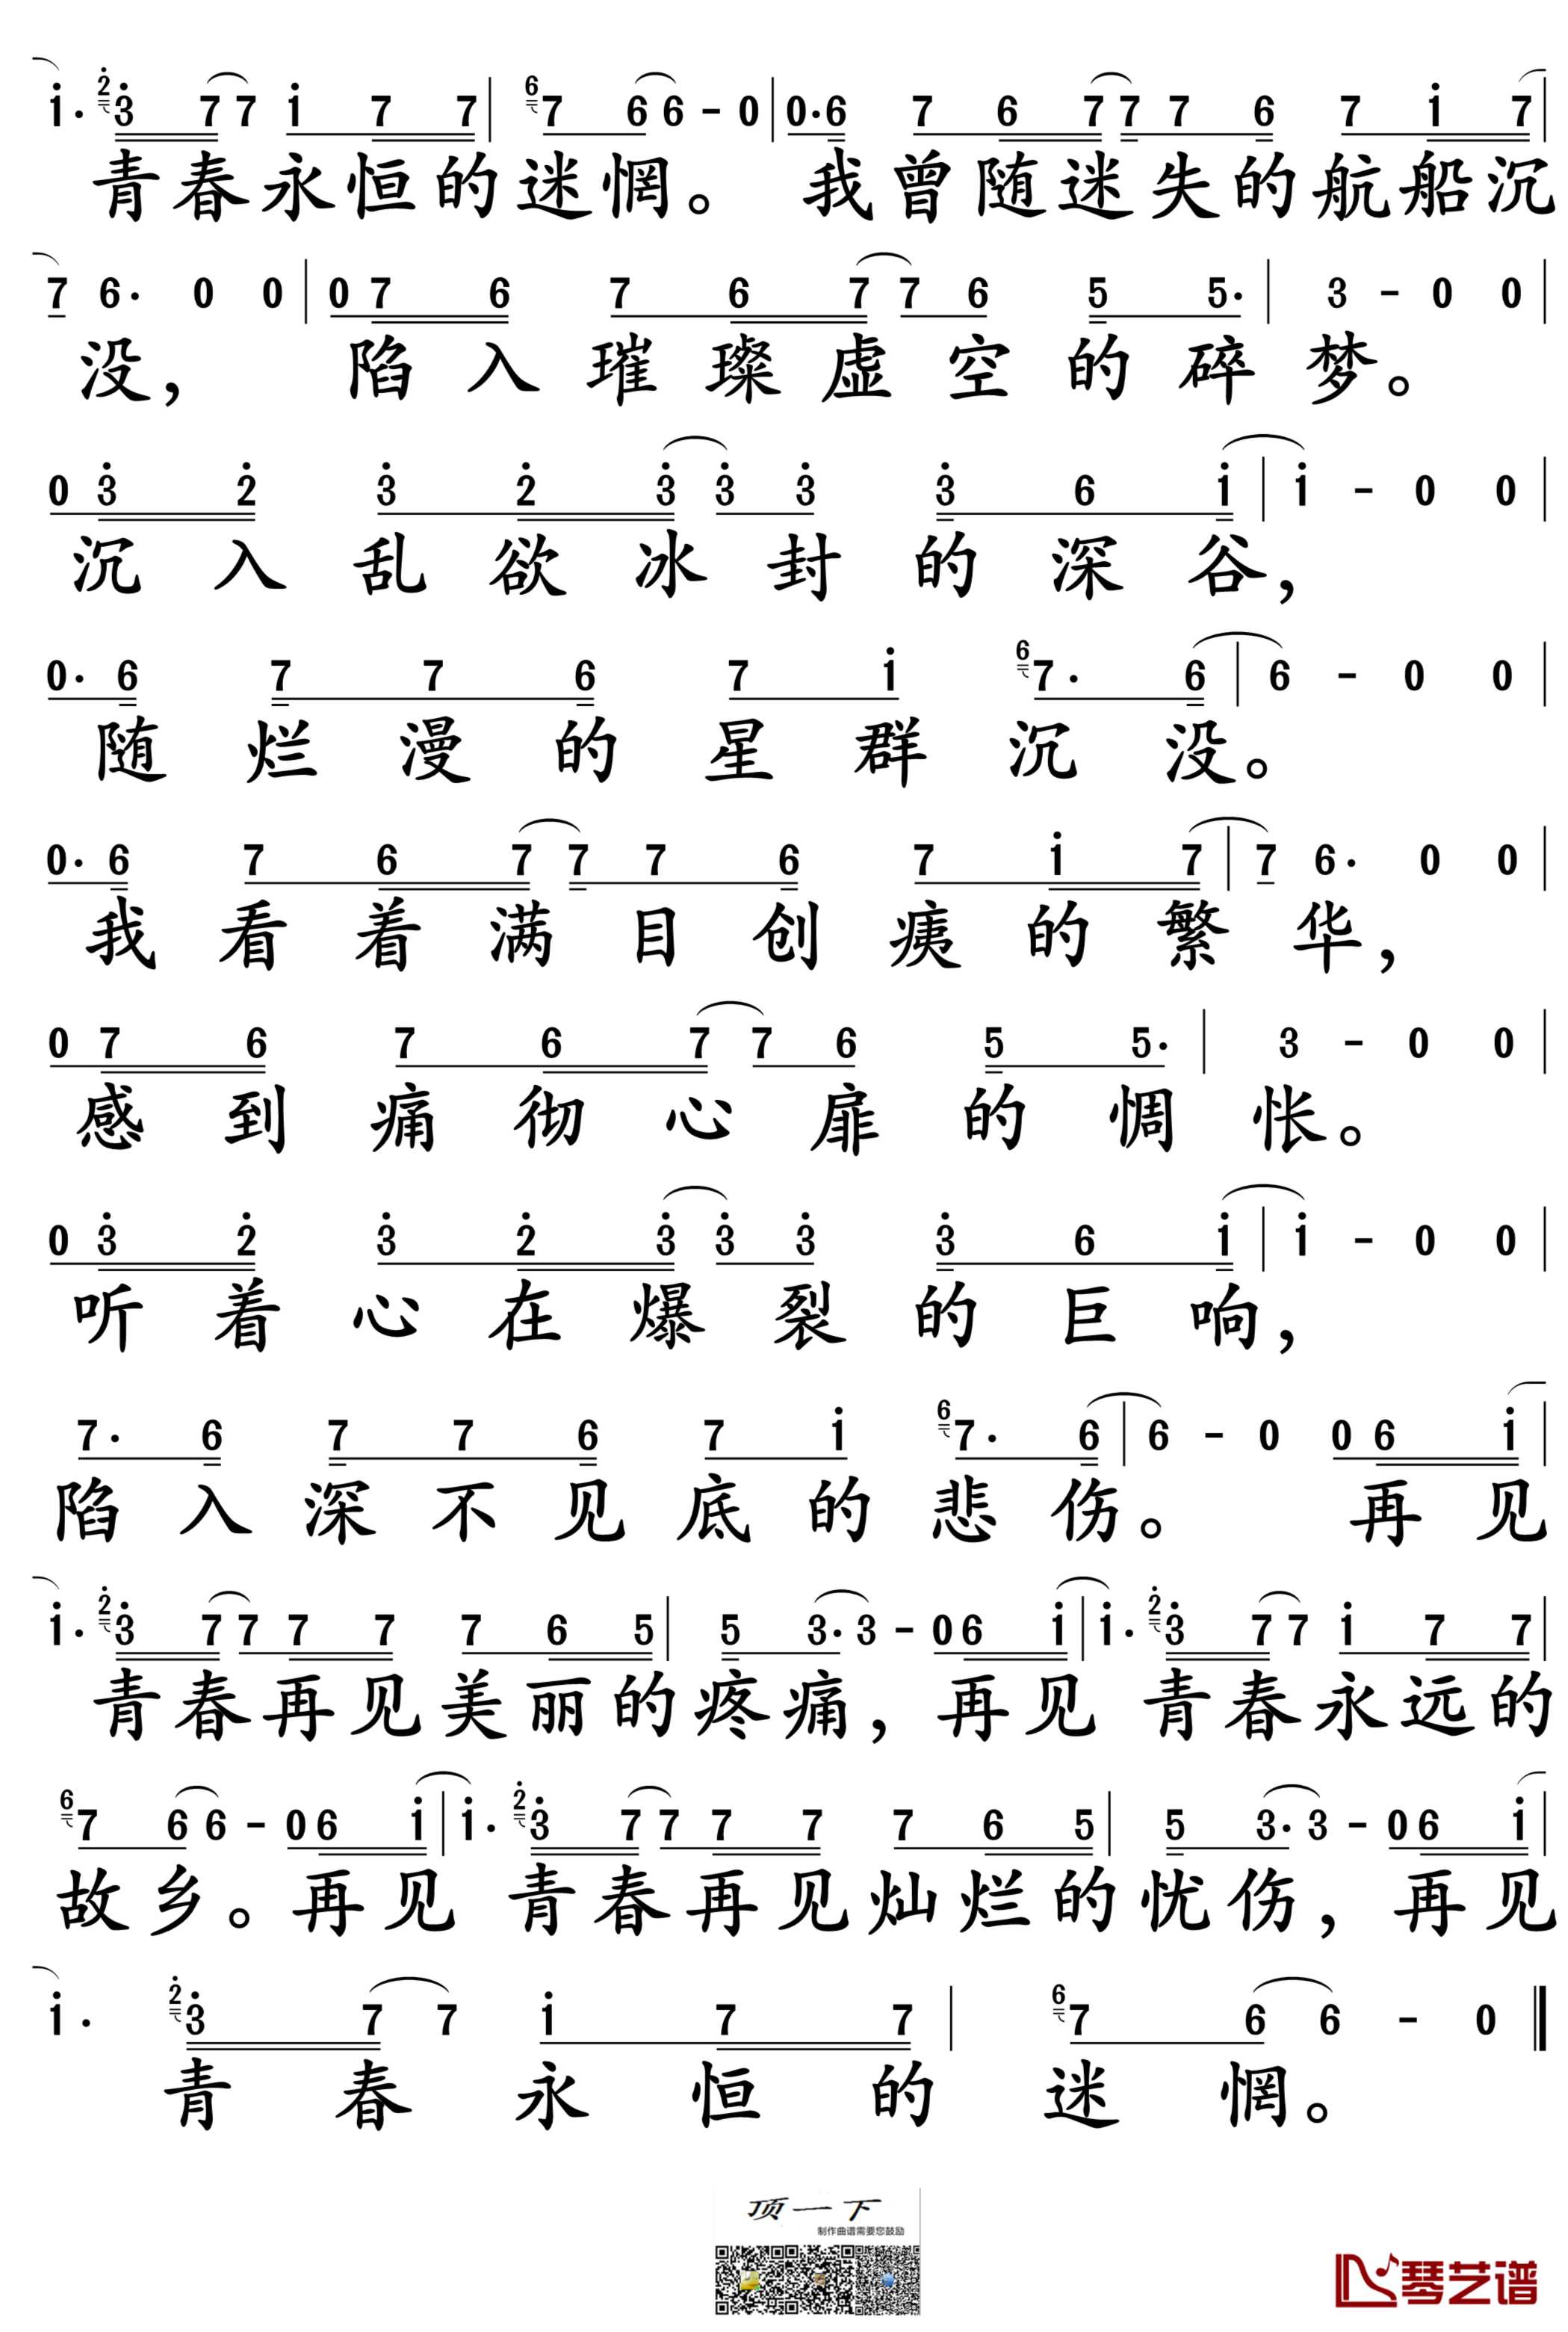 i· 2 3 7 7 i 7 7 | 6 7 6 6 - 0 | 0· 6 7 6 7 7 7 6 7 i 7 |
青春永恒的迷惘。 我曾随迷失的航船沉
7 6· 0 0 | 0 7 6 7 6 7 7 6 5 5· | 3 - 0 0 |
没， 陷入璀璨虚空的碎梦。
0 3 2 3 2 3 3 3 3 6 i | i - 0 0 |
沉入乱欲冰封的深谷，
0· 6 7 7 6 7 i 6 7· 6 | 6 - 0 0 |
随烂漫的星群沉没。
0· 6 7 6 7 7 7 6 7 i 7 | 7 6· 0 0 |
我看着满目创痍的繁华，
0 7 6 7 6 7 7 6 5 5· | 3 - 0 0 |
感到痛彻心扉的惆怅。
0 3 2 3 2 3 3 3 3 6 i | i - 0 0 |
听着心在爆裂的巨响，
7· 6 7 7 6 7 i 6 7· 6 | 6 - 0 0 6 i |
陷入深不见底的悲伤。 再见
i· 2 3 7 7 7 7 7 6 5 | 5 3· 3 - 0 6 i | i· 2 3 7 7 i 7 7 |
青春再见美丽的疼痛，再见 青春永远的
6 7 6 6 - 0 6 i | i· 2 3 7 7 7 7 7 6 5 | 5 3· 3 - 0 6 i |
故乡。再见 青春再见灿烂的忧伤，再见
i· 2 3 7 7 i 7 7 | 6 7 6 6 - 0
青春永恒的迷惘。
顶一下
制作曲谱需要您鼓励
琴艺谱